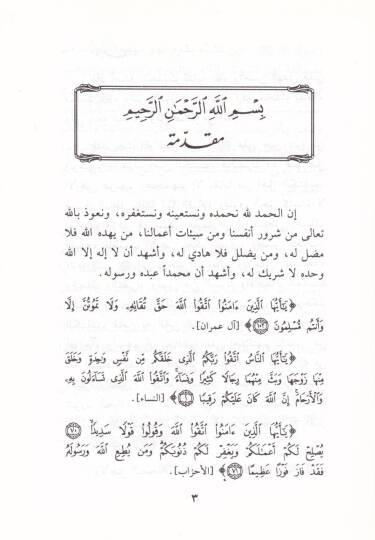 بِسْمِ اللَّهِ الرَّحْمَٰنِ الرَّحِيمِ
مقدّمة
إن الحمد لله نحمده ونستعينه ونستغفره، ونعوذ بالله
تعالى من شرور أنفسنا ومن سيئات أعمالنا، من يهده الله فلا
مضل له، ومن يضلل فلا هادي له، وأشهد أن لا إله إلا الله
وحده لا شريك له، وأشهد أن محمداً عبده ورسوله.
﴿يَٰٓأَيُّهَا ٱلَّذِينَ ءَامَنُوا۟ ٱتَّقُوا۟ ٱللَّهَ حَقَّ تُقَاتِهِۦ وَلَا تَمُوتُنَّ إِلَّا
وَأَنتُم مُّسْلِمُونَ ١٠٢﴾ [آل عمران].
﴿يَٰٓأَيُّهَا ٱلنَّاسُ ٱتَّقُوا۟ رَبَّكُمُ ٱلَّذِى خَلَقَكُم مِّن نَّفْسٍ وَٰحِدَةٍ وَخَلَقَ
مِنْهَا زَوْجَهَا وَبَثَّ مِنْهُمَا رِجَالًا كَثِيرًا وَنِسَآءً وَٱتَّقُوا۟ ٱللَّهَ ٱلَّذِى تَسَآءَلُونَ بِهِۦ
وَٱلْأَرْحَامَ إِنَّ ٱللَّهَ كَانَ عَلَيْكُمْ رَقِيبًا ١﴾ [النساء].
﴿يَٰٓأَيُّهَا ٱلَّذِينَ ءَامَنُوا۟ ٱتَّقُوا۟ ٱللَّهَ وَقُولُوا۟ قَوْلًا سَدِيدًا ٧٠
يُصْلِحْ لَكُمْ أَعْمَٰلَكُمْ وَيَغْفِرْ لَكُمْ ذُنُوبَكُمْ وَمَن يُطِعِ ٱللَّهَ وَرَسُولَهُۥ
فَقَدْ فَازَ فَوْزًا عَظِيمًا ٧١﴾ [الأحزاب].
٣